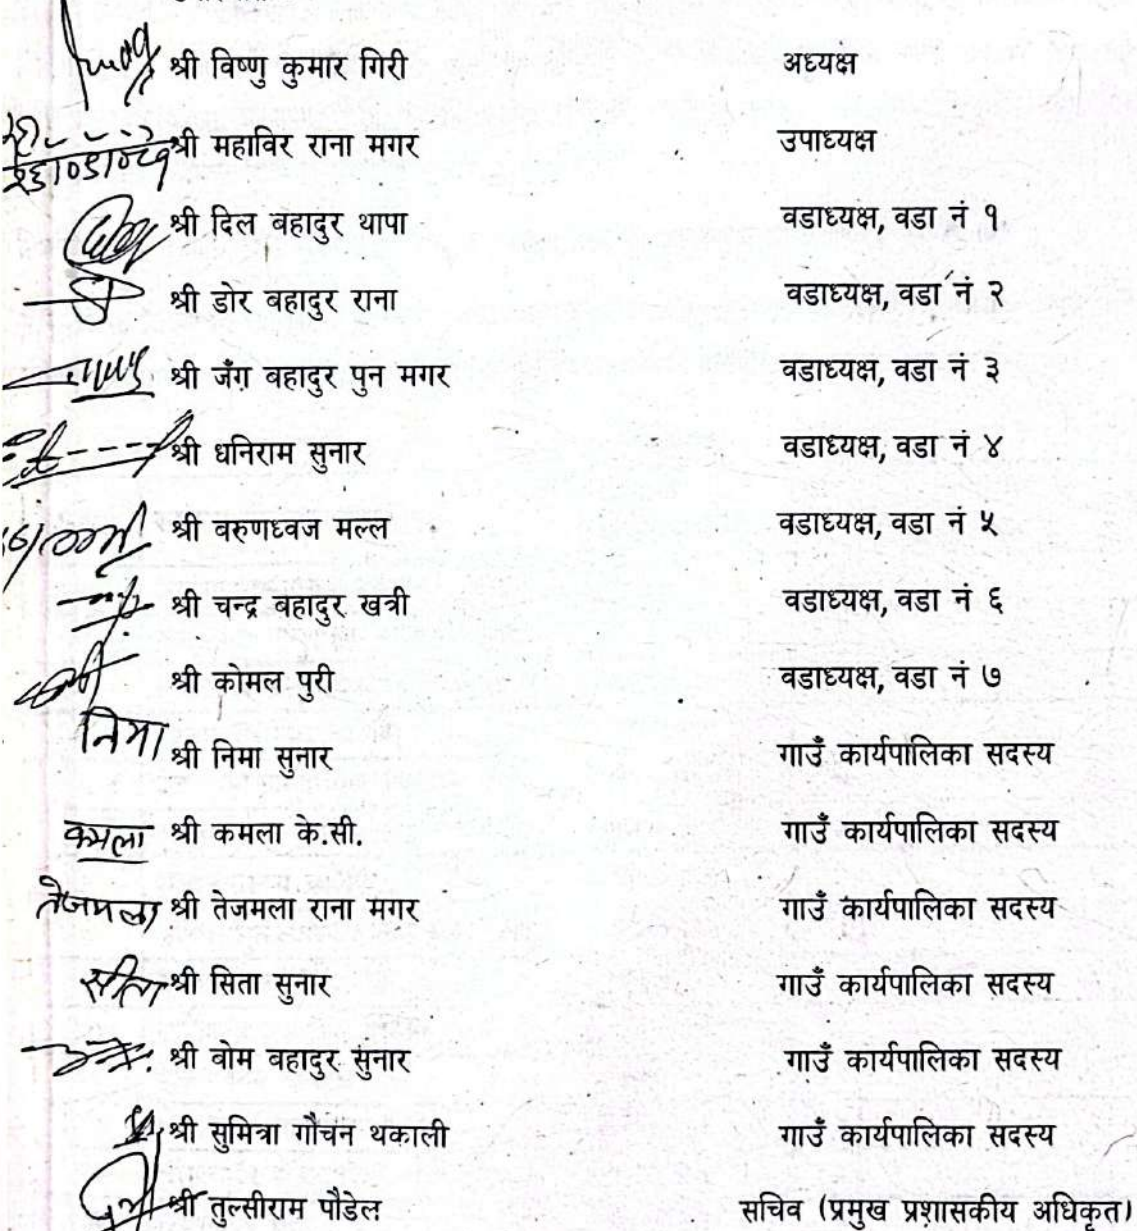 श्री विष्णु कुमार गिरी अध्यक्ष
श्री महाविर राना मगर उपाध्यक्ष
श्री दिल बहादुर थापा वडाध्यक्ष, वडा नं १
श्री डोर बहादुर राना वडाध्यक्ष, वडा नं २
श्री जँग बहादुर पुन मगर वडाध्यक्ष, वडा नं ३
श्री धनिराम सुनार वडाध्यक्ष, वडा नं ४
श्री बरुणध्वज मल्ल वडाध्यक्ष, वडा नं ५
श्री चन्द्र बहादुर खत्री वडाध्यक्ष, वडा नं ६
श्री कोमल पुरी वडाध्यक्ष, वडा नं ७
निमा श्री निमा सुनार गाउँ कार्यपालिका सदस्य
कमला श्री कमला के.सी. गाउँ कार्यपालिका सदस्य
तेजमला श्री तेजमला राना मगर गाउँ कार्यपालिका सदस्य
सीता श्री सिता सुनार गाउँ कार्यपालिका सदस्य
श्री वोम बहादुर सुनार गाउँ कार्यपालिका सदस्य
श्री सुमित्रा गौचन थकाली गाउँ कार्यपालिका सदस्य
श्री तुल्सीराम पौडेल सचिव (प्रमुख प्रशासकीय अधिकृत)